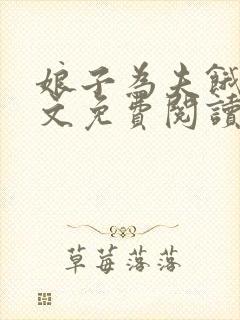 娘子為夫餓
文免費閱讀
草莓落落